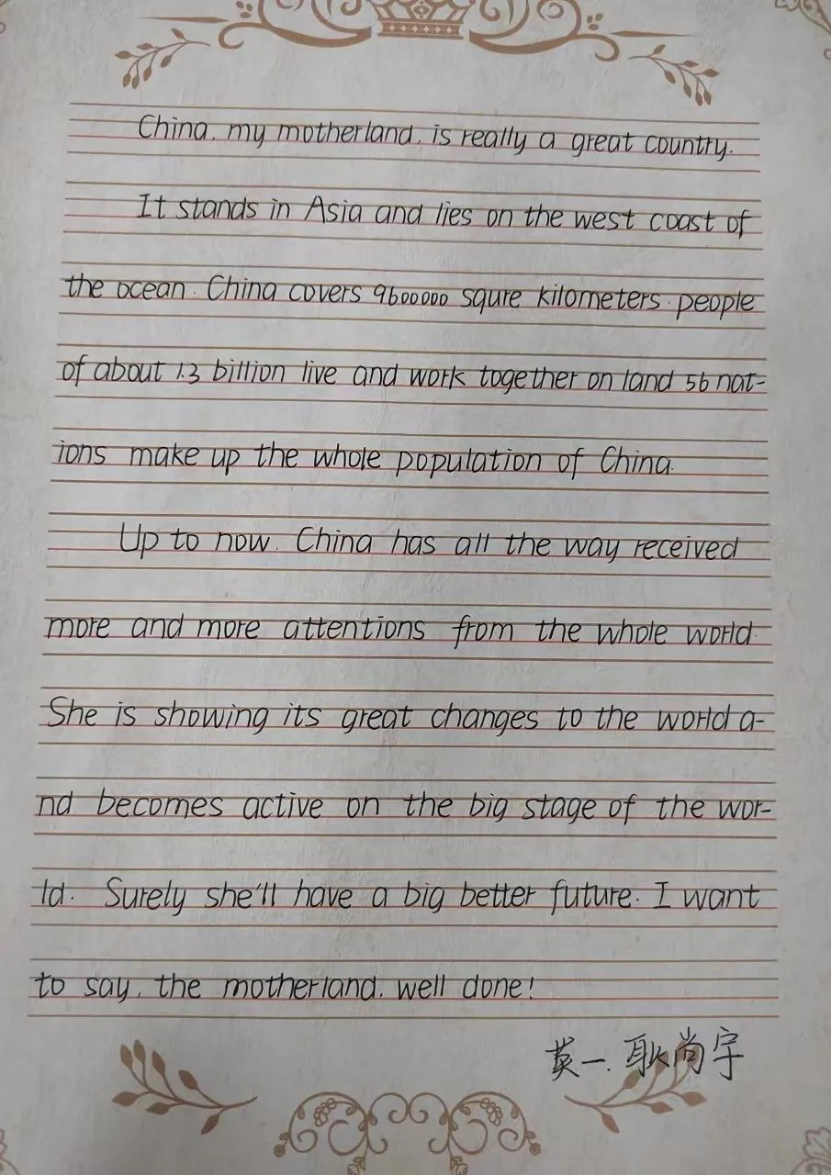 China, my motherland, is really a great country.
It stands in Asia and lies on the west coast of
the ocean. China covers 9600000 squre kilometers. people
of about 1.3 billion live and work together on land 56 nat-
ions make up the whole population of China.
Up to now, China has all the way received
more and more attentions from the whole world.
She is showing its great changes to the world a-
nd becomes active on the big stage of the wor-
ld. Surely she'll have a big better future. I want
to say, the motherland, well done!
英一. 耿尚宇